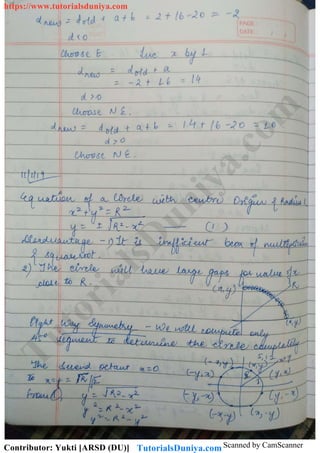 https://www.tutorialsduniya.com
PAGE
DATE
dnew = dold + a+b = 2+16-20 = -2
d<0
Choose E Inc x by 1
dnew = dold + a
= -2 + 16 = 14
d>0
Choose NE.
dnew = dold + a+b = 14+16-20 = 10
d>0
Choose NE.
Equation of a Circle with centre Origin & Radius
x²+y²=R²
y = ± √R²-x² (1)
Disadvantage - 1) It is inefficient bcoz of multiplication
& square root.
2) The circle will have large gaps for value of x
close to R.
(x,y)
R
(x,y)
Eight Way Symmetry - We will compute only
45° segment to determine the circle completely
The second octant x=0
to x=y = R/√2
From (1) y = √R²-x²
y² = R²-x²
(-x,y)
(x,y)
(-y,x)
(y,x)
(-y,-x)
(y,-x)
(-x,-y)
(x,-y)
TutorialsDuniya.com
Contributor: Yukti [ARSD (DU)] TutorialsDuniya.com Scanned by CamScanner